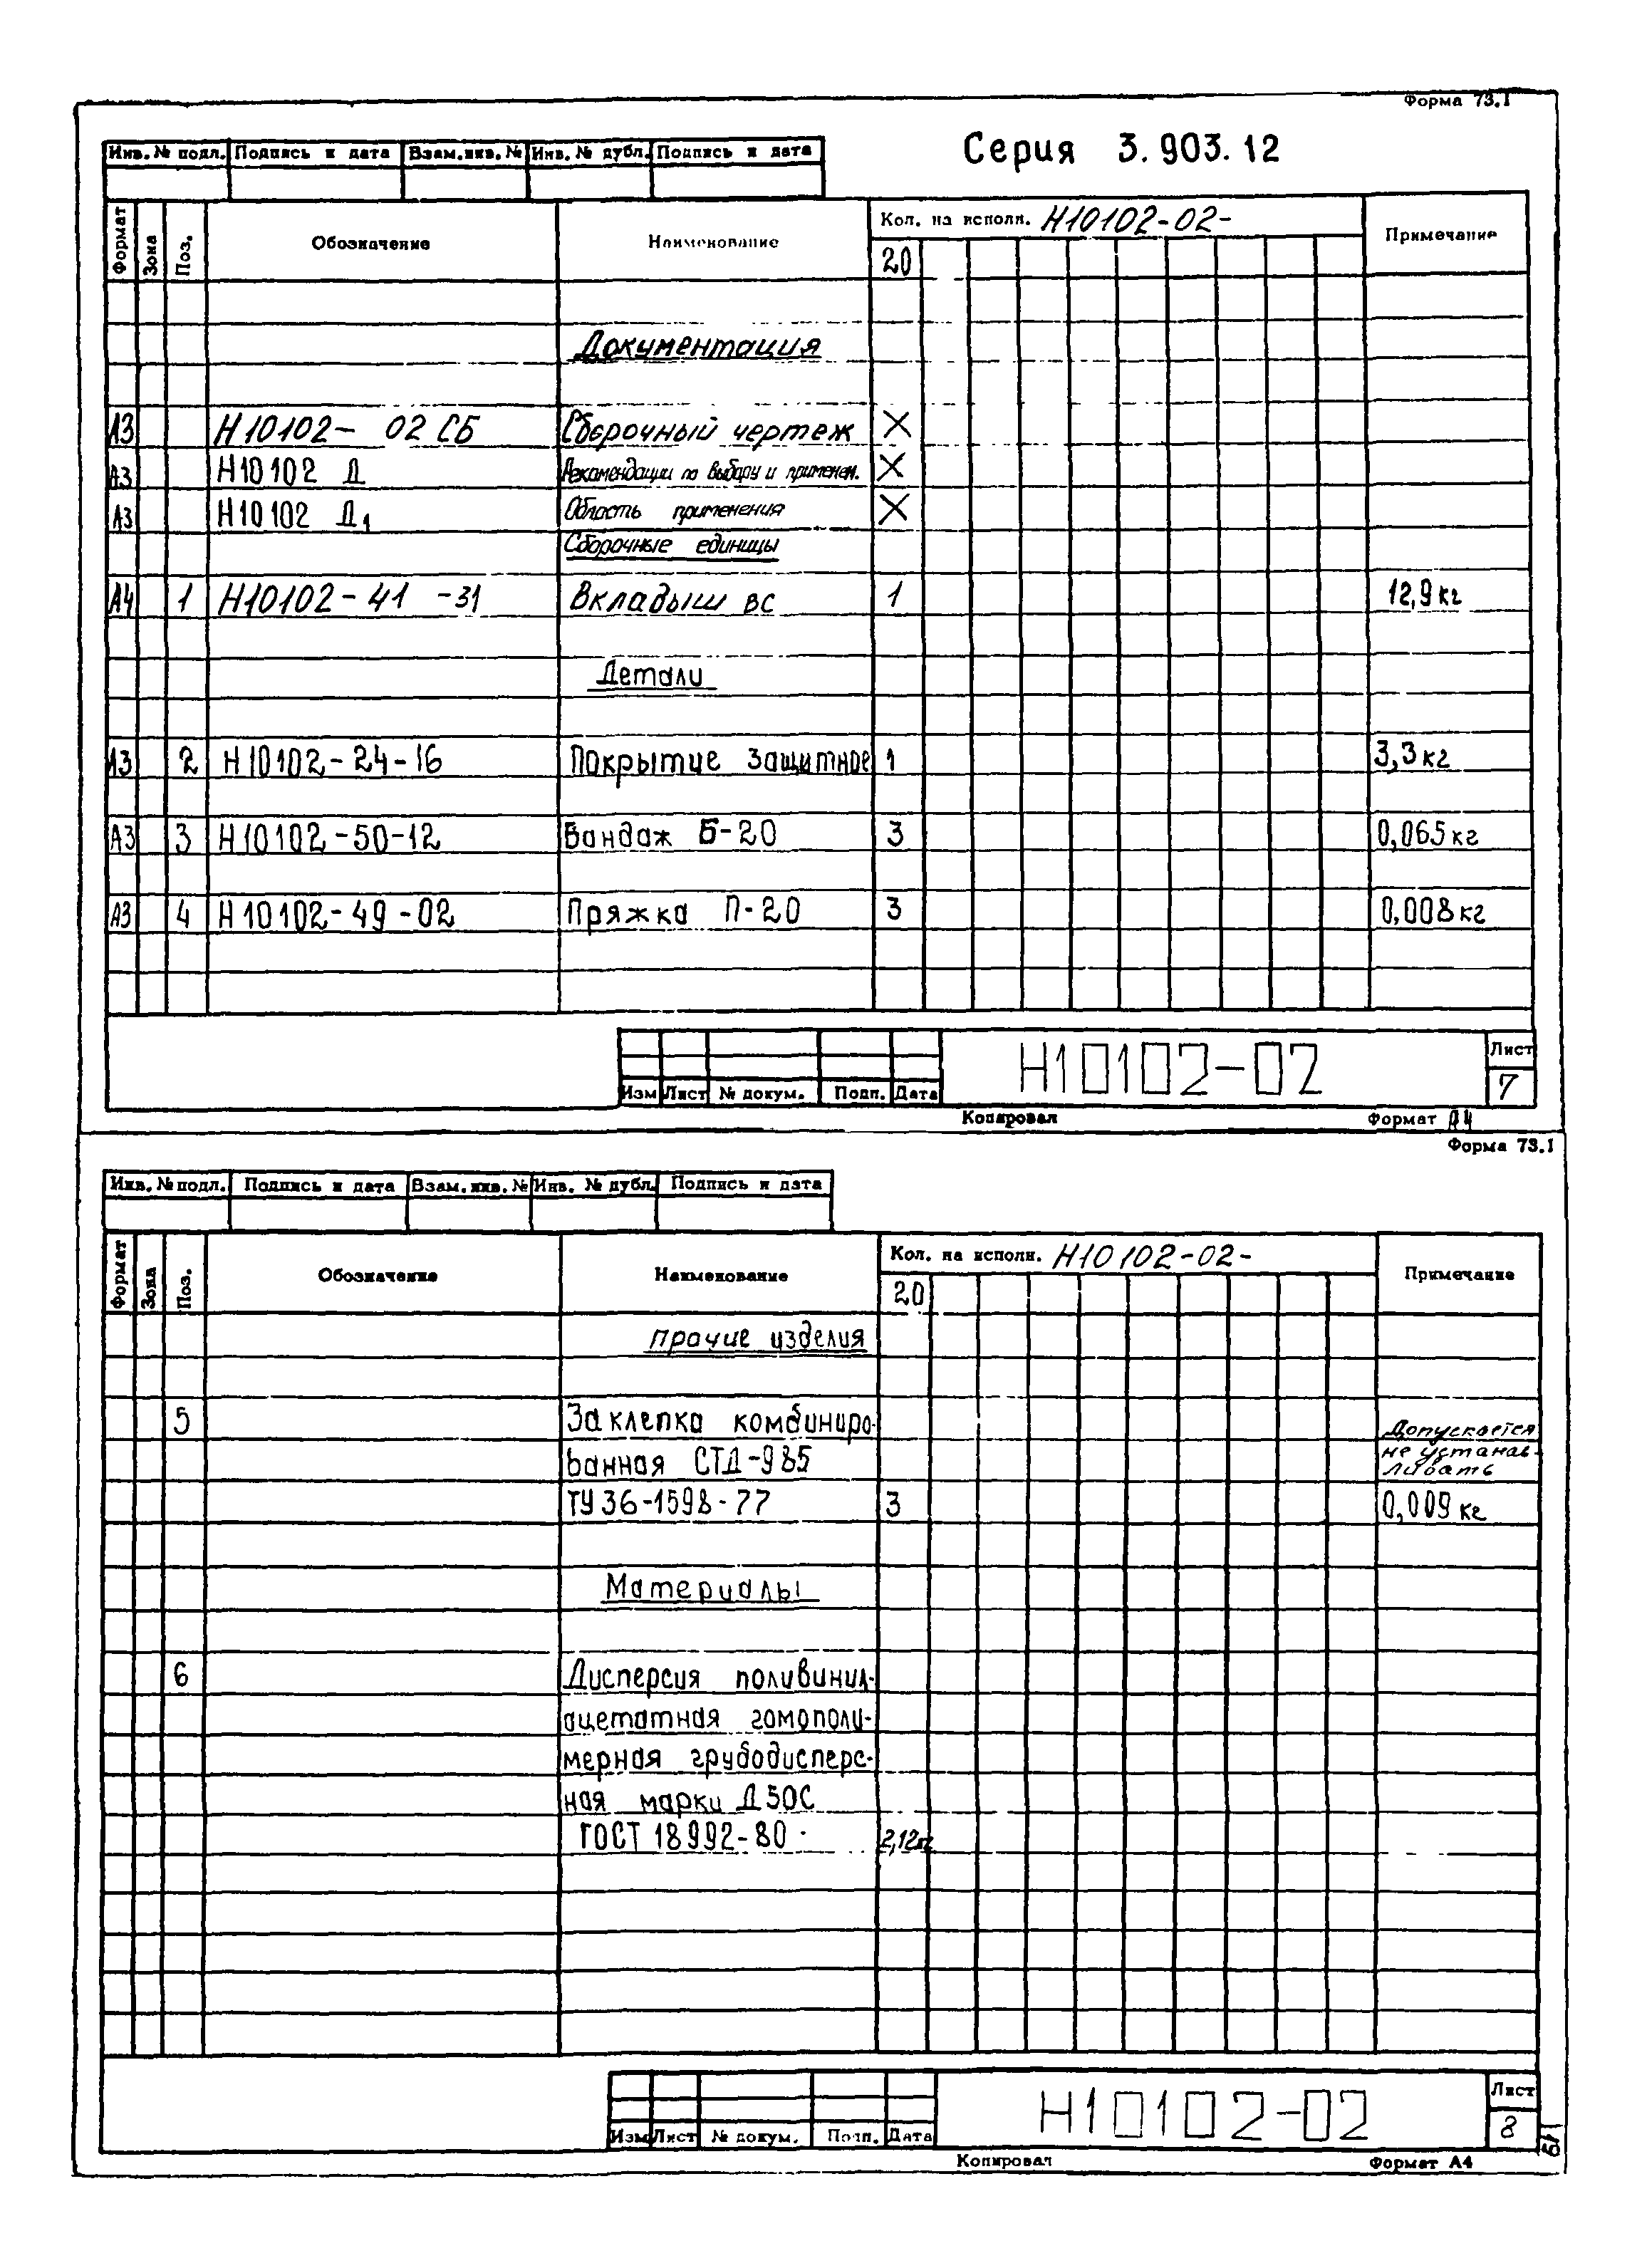 Форма 73.1
Серия 3.903.12
Инв. № подл. Подпись и дата Взам.инв. № Инв. № дубл. Подпись и дата
Формат Зона Поз. Обозначение Наименование Кол. на исполн. Н10102-02- Примечание
20
Документация
А3 Н10102- 02 СБ Сборочный чертеж X
А3 Н10102 Д Рекомендации по выбору и применен. X
А3 Н10102 Д1 Область применения X
Сборочные единицы
А4 1 Н10102-41 -31 Вкладыш ВС 1 12,9 кг
Детали
А3 2 Н10102-24-16 Покрытие защитное 1 3,3 кг
А3 3 Н10102-50-12 Бандаж Б-20 3 0,065 кг
А3 4 Н10102-49-02 Пряжка П-20 3 0,008 кг
Н10102-02 Лист
Изм Лист № докум. Подп. Дата 7
Копировал Формат А4
Форма 73.1
Инв. № подл. Подпись и дата Взам. инв. № Инв. № дубл. Подпись и дата
Формат Зона Поз. Обозначение Наименование Кол. на исполн. Н10102-02- Примечание
20
прочие изделия
5 Заклепка комбиниро- Допускается
ванная СТД-985 не устанав-
ливать
ТУ 36-1598-77 3 0,009 кг
Материалы
6 Дисперсия поливинил-
ацетатная гомополи-
мерная грубодисперс-
ная марки Д50С
ГОСТ 18992-80 2,12кг
Н10102-02 Лист
Изм Лист № докум. Подп. Дата 8
Копировал Формат А4